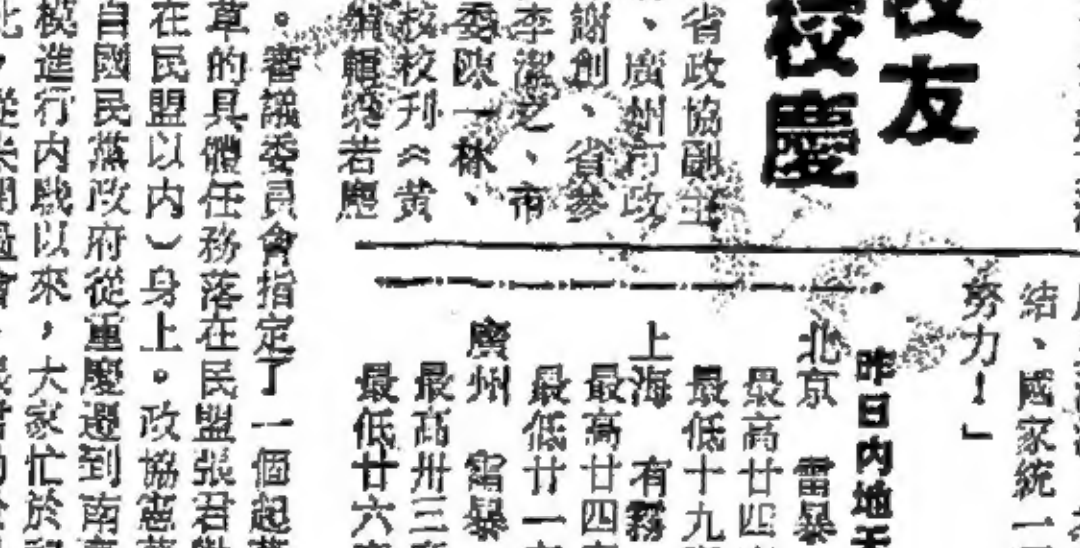 校友
校慶
省政協副主
、廣州市政
謝創、省參
李潔之、市
委陳一林、
校校刊《黄
編輯梁若塵
結、國家統一
努力！」
昨日內地天
北京　雷暴
最高廿四
最低十九
上海　有霧
最高廿四
最低廿一
廣州　雷暴
最高卅三
最低廿六
。審議委員會指定了一個起
草的具體任務落在民盟張君勱
在民盟以內）身上。政協憲草
自國民黨政府從重慶遷到南京
模進行內戰以來，大家忙於
，從未開過會